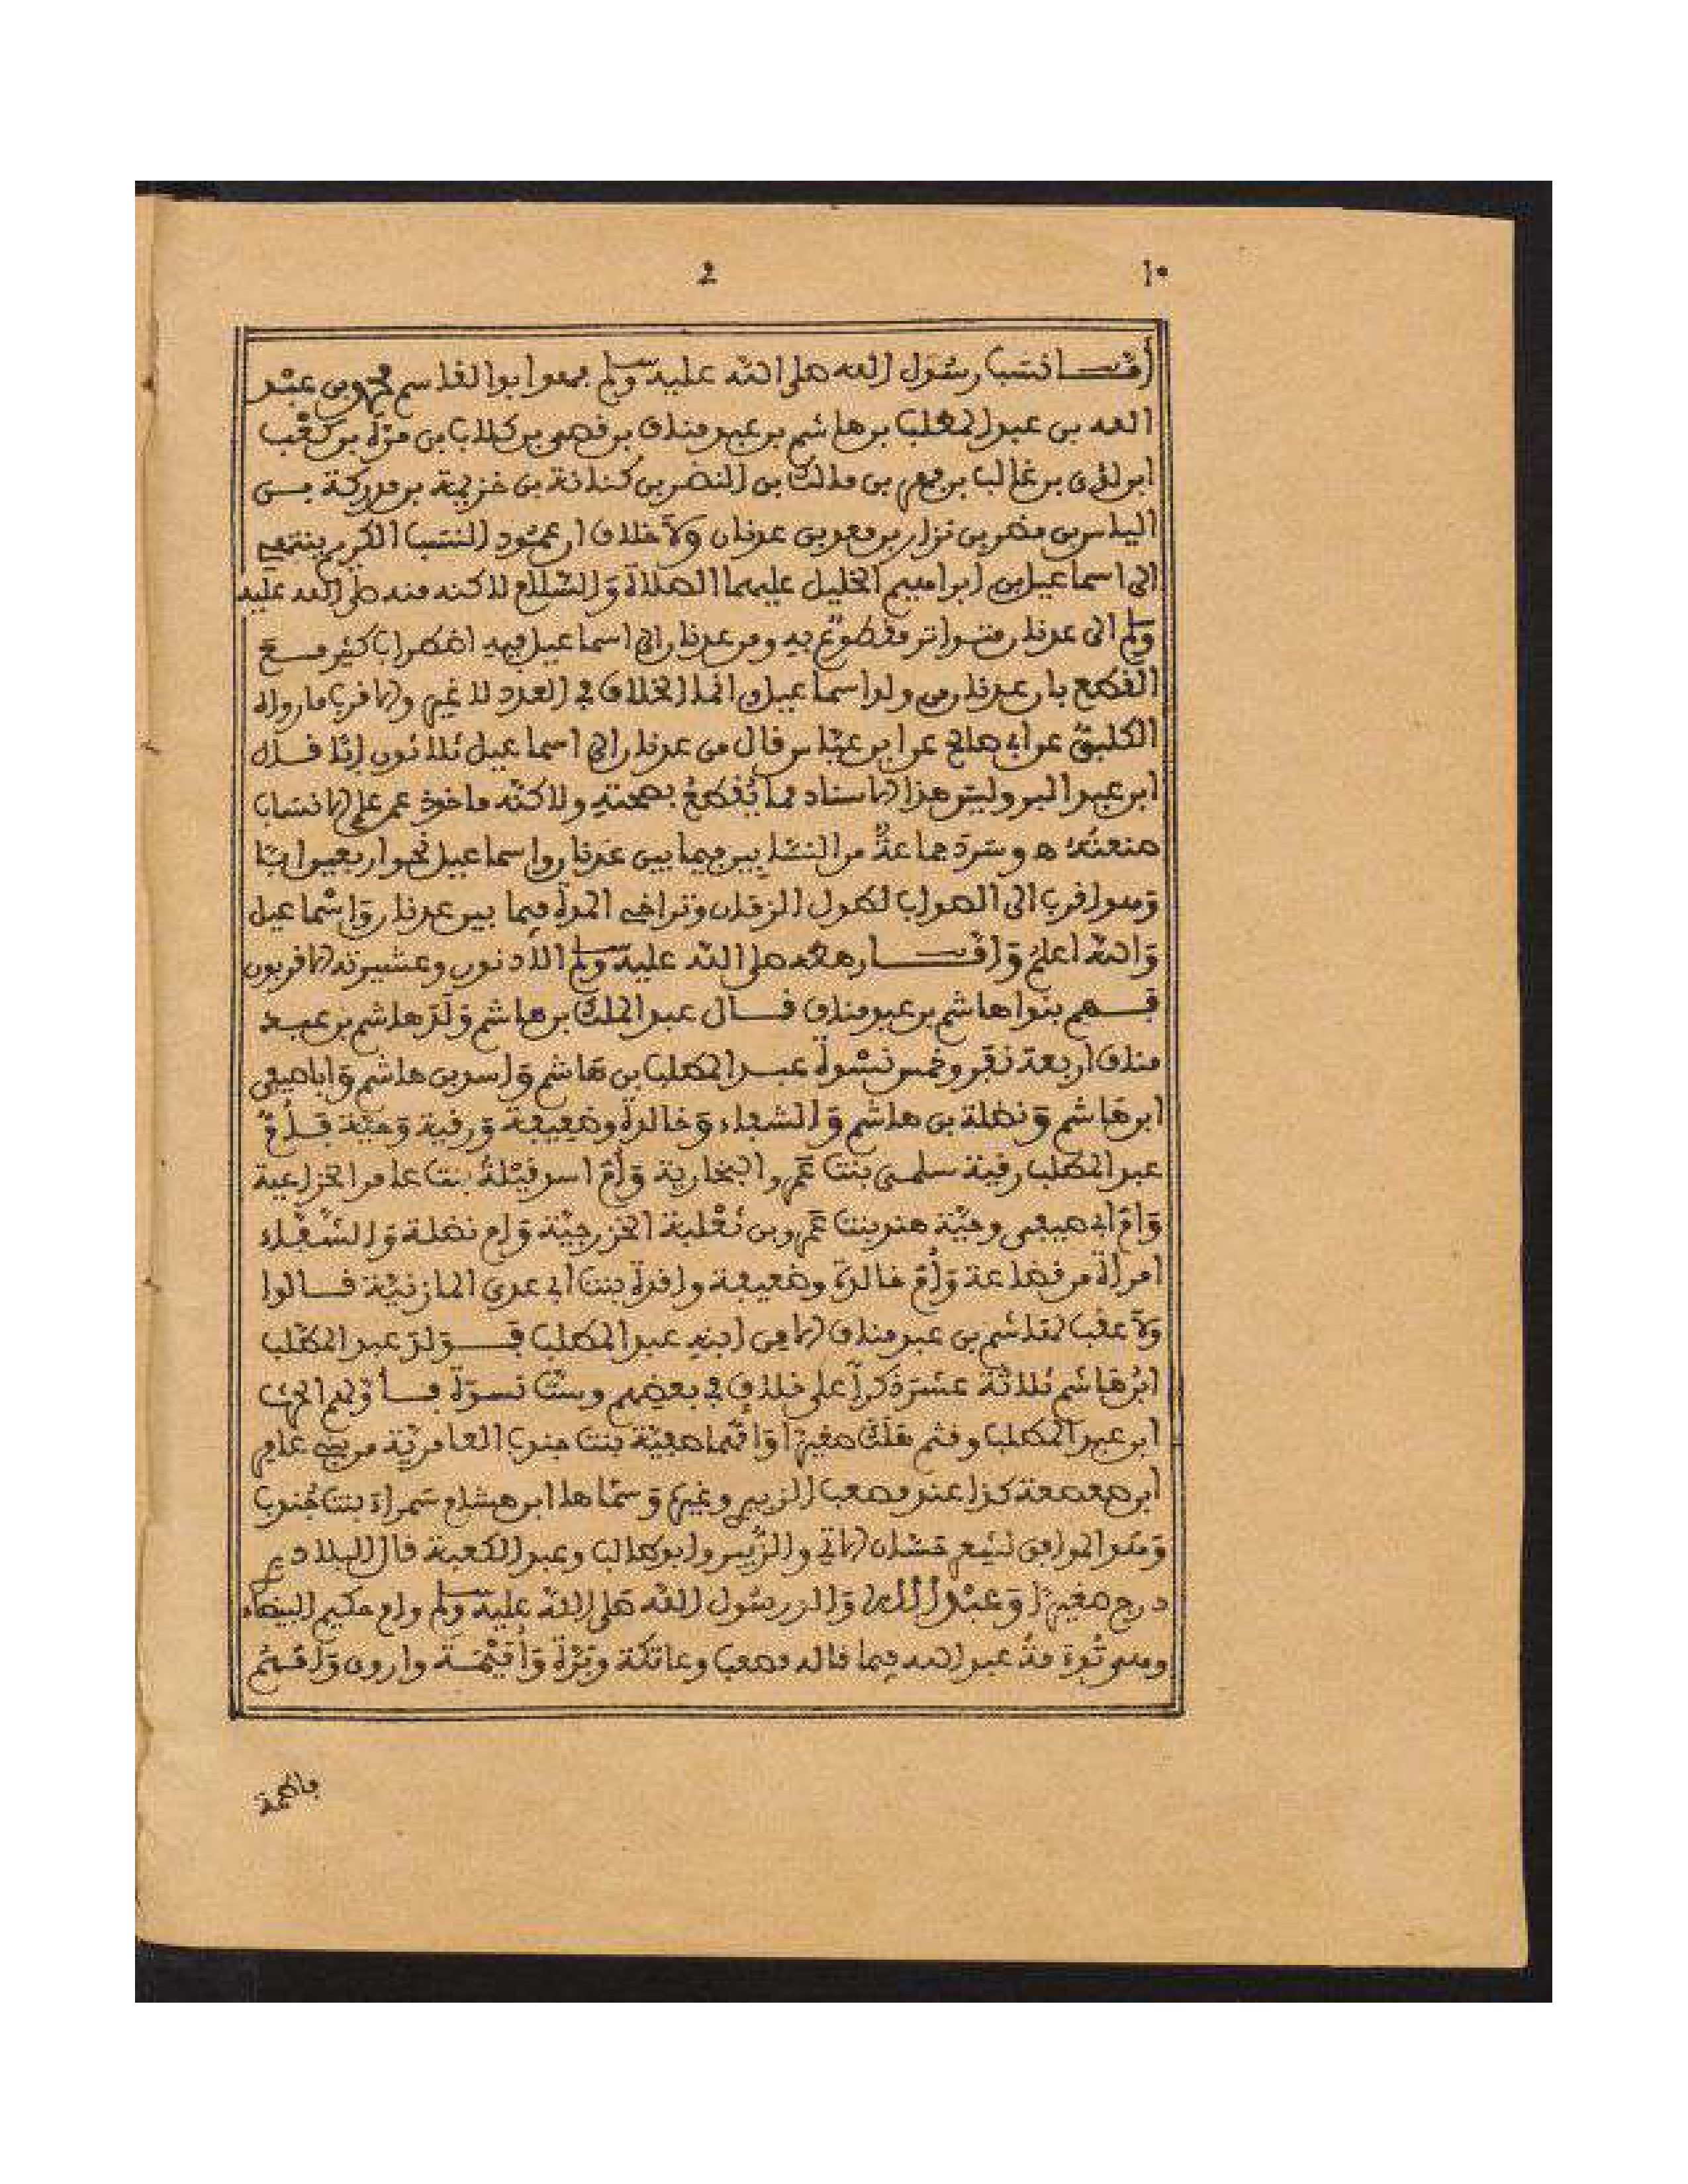 2 10
أما نسب رسول الله صلى الله عليه وسلم فهو ابو القاسم محمد بن عبد
الله بن عبد المطلب بن هاشم بن عبد مناف بن قصي بن كلاب بن مرة بن كعب
ابن لؤي بن غالب بن فهر بن مالك بن النضر بن كنانة بن خزيمة بن مدركة بن
الياس بن مضر بن نزار بن معد بن عدنان ولا خلاف ان عمود النسب الكريم ينتهي
الى اسماعيل بن ابراهيم الخليل عليهما الصلاة والسلام لاكنه منه صلى الله عليه
وسلم الى عدنان متواتر مقطوع به ومن عدنان الى اسماعيل فيه اضطراب كثير مع
القطع بان عدنان من ولد اسماعيل وانما الخلاف في العدد لا غير والاقرب ما رواه
الكلبي عن ابي صالح عن ابن عباس قال من عدنان الى اسماعيل ثلاثون ابا قال
ابن عبد البر وليس هذا الاسناد مما يقطع بصحته ولاكنه ماخوذ عمن علم الانساب
صنعته ه وسرد جماعة من النسابين فيما بين عدنان واسماعيل نحو اربعين ابا
وهو اقرب الى الصواب لطول الزمان وتراخي المدة فيما بين عدنان واسماعيل
والله اعلم وأما رهطه صلى الله عليه وسلم الادنون وعشيرته الاقربون
فهم بنوا هاشم بن عبد مناف قال عبد الملك بن هاشم ولد هاشم بن عبد
مناف اربعة نفر وخمس نسوة عبد المطلب بن هاشم واسد بن هاشم وابا صيفي
ابن هاشم ونضلة بن هاشم والشفاء وخالدة وضعيفة ورقية وحية فأم
عبد المطلب رقية سلمى بنت عمرو النجارية وأم اسد قيلة بنت عامر الخزاعية
وأم ابي صيفي وحية هند بنت عمرو بن ثعلبة الخزرجية وام نضلة والشفاء
امرأة من قضاعة وأم خالدة وضعيفة وافدة بنت ابي عدي المازنية قالوا
ولا عقب لهاشم بن عبد مناف الا من ابنه عبد المطلب فولد عبد المطلب
ابن هاشم ثلاثة عشر ذكرا على خلاف في بعضهم وست نسوة فأولهم الحرث
ابن عبد المطلب وقثم هلك صغيرا وامهما صفية بنت جندب العامرية من بني عامر
ابن صعصعة كذا عند مصعب الزبيري وغيره وسماها ابن هشام سمراء بنت جندب
وهو الموافق لشعر حسان الاتي والزبير وابو طالب وعبد الكعبة قال البلاذري
درج صغيرا وعبد الله والد رسول الله صلى الله عليه وسلم وام حكيم البيضاء
وهي توءمة عبد الله فيما قاله مصعب وعاتكة وبرة وأميمة واروى وأمهم
فاطمة